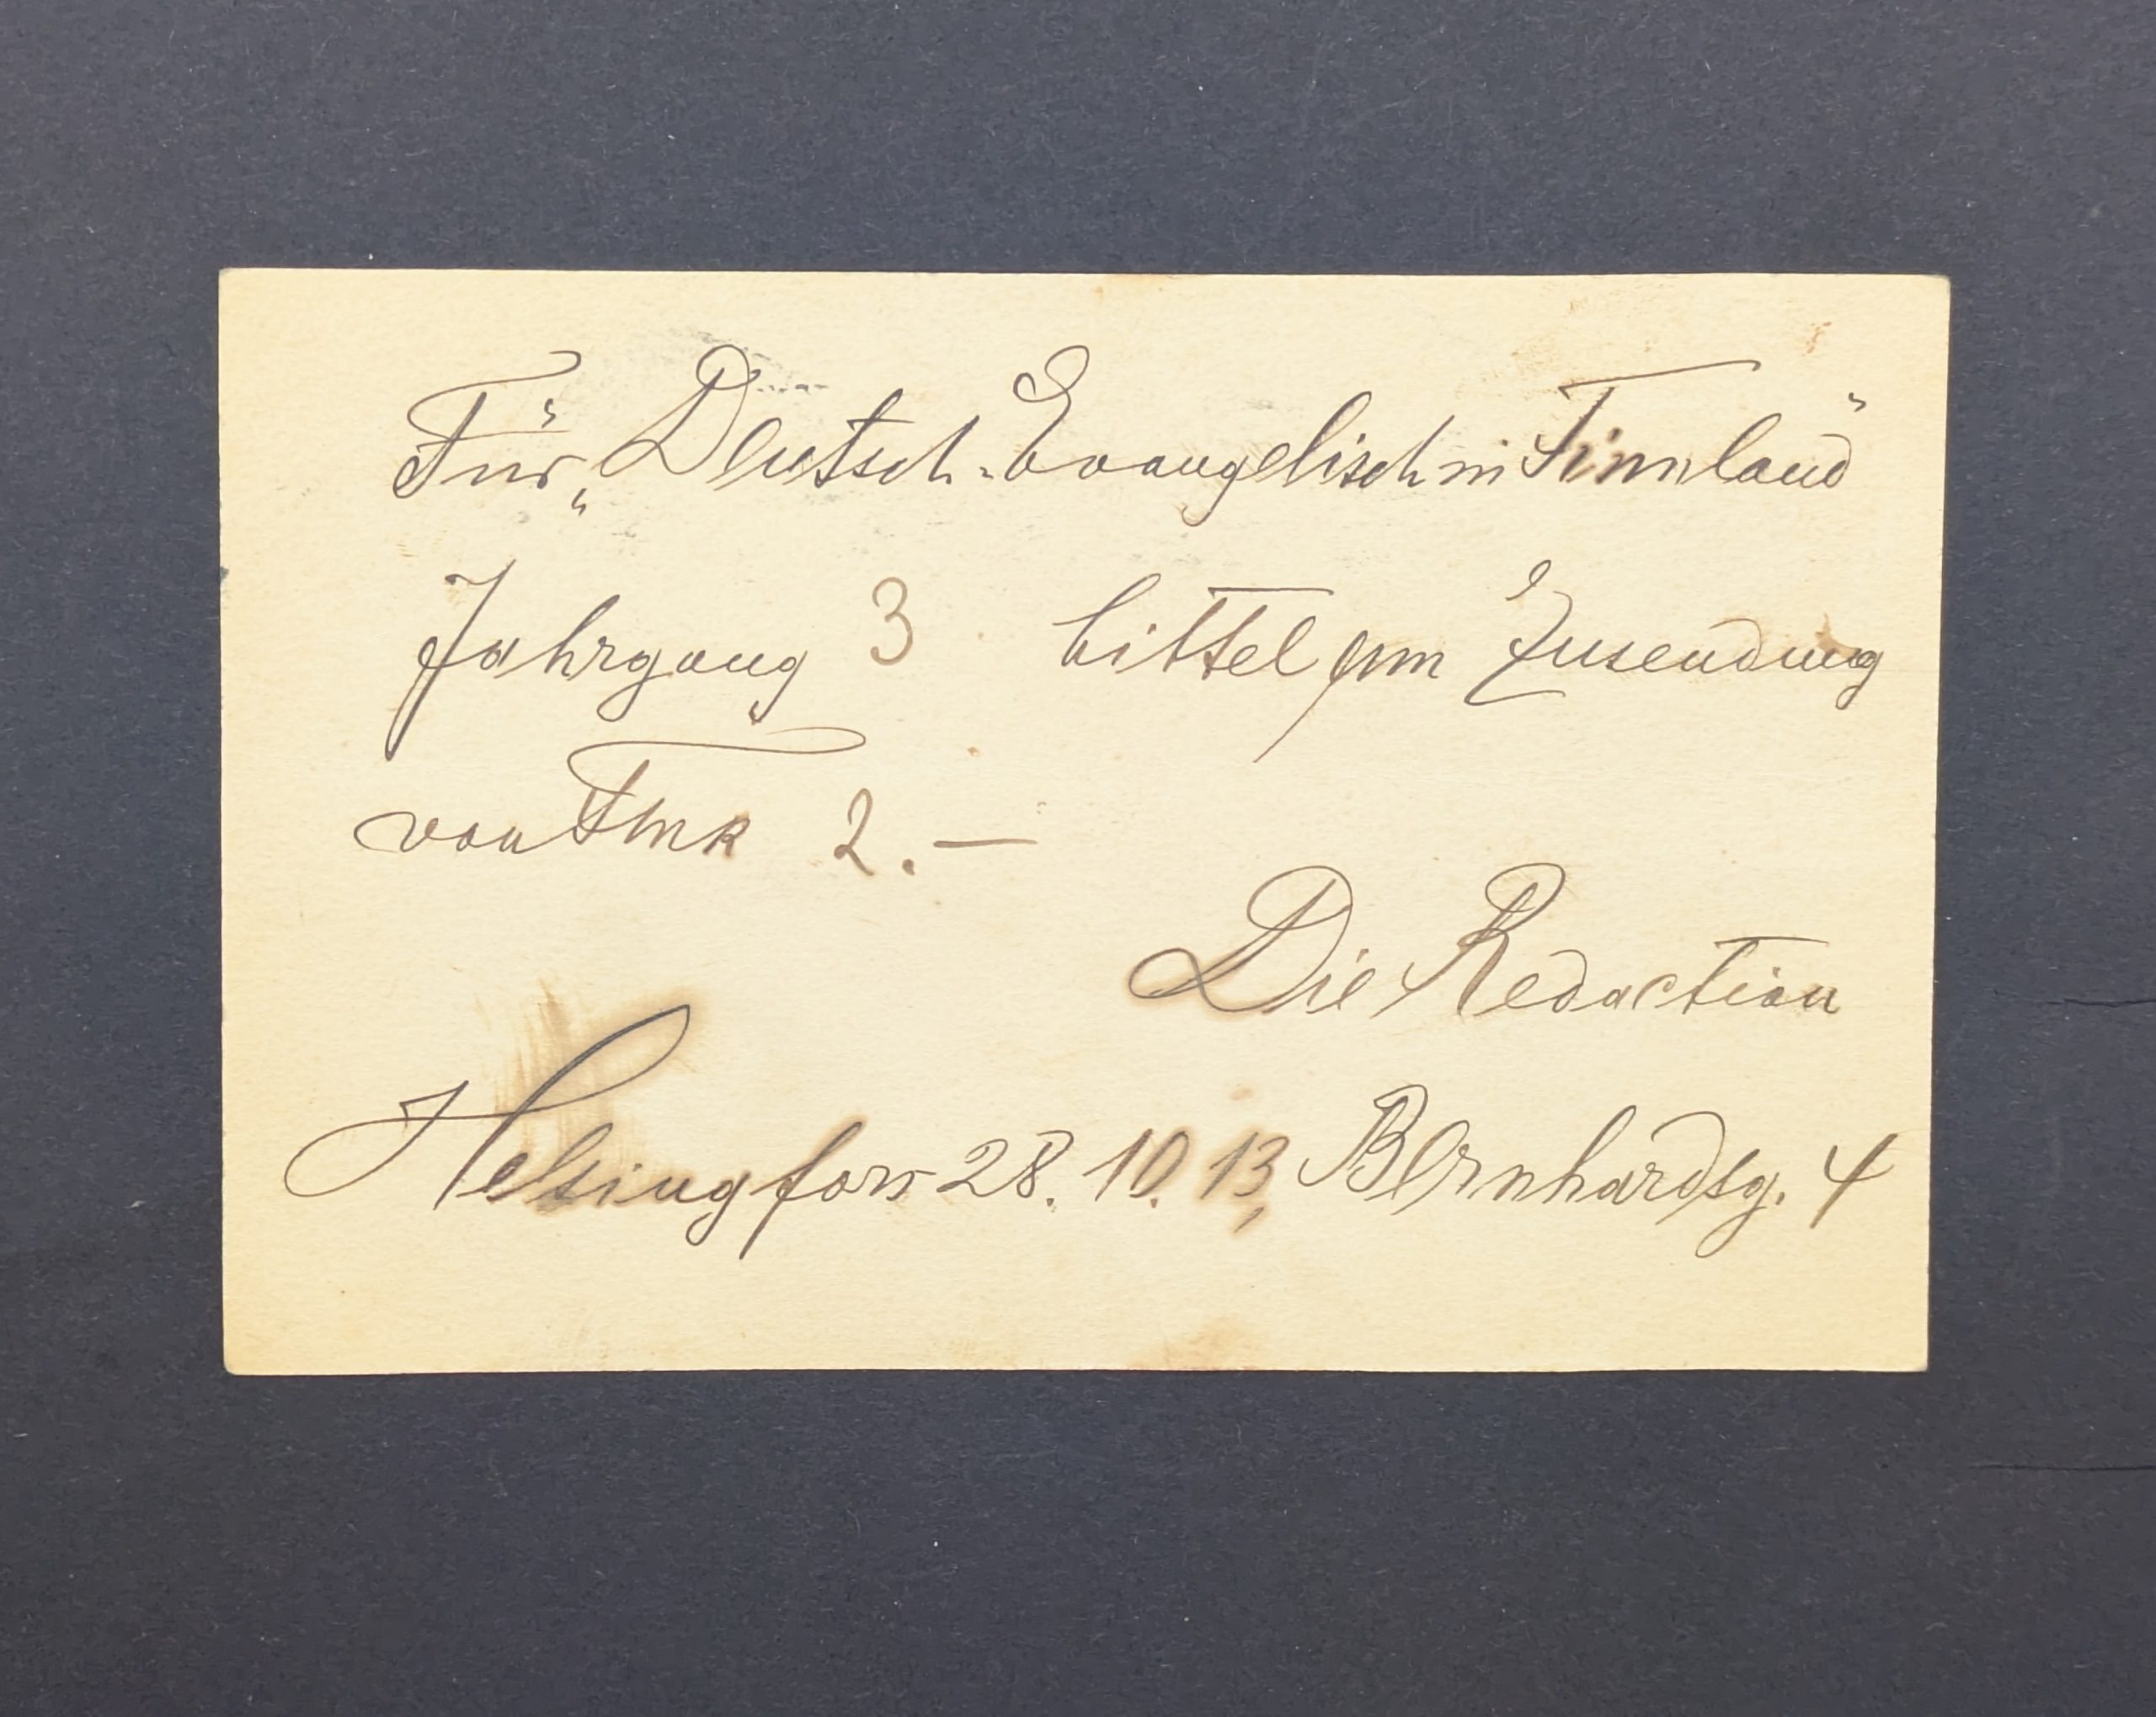 Für „Deutsch-Evangelisch in Finnland"
Jahrgang 3 bittet um Zusendung
von Fmk 2.—
Die Redaction
Helsingfors 28. 10. 13, Bernhardsg. 4